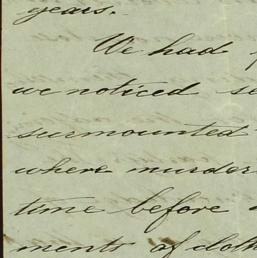 years.
We had
we noticed
surmounted
where murder
time before
ments of